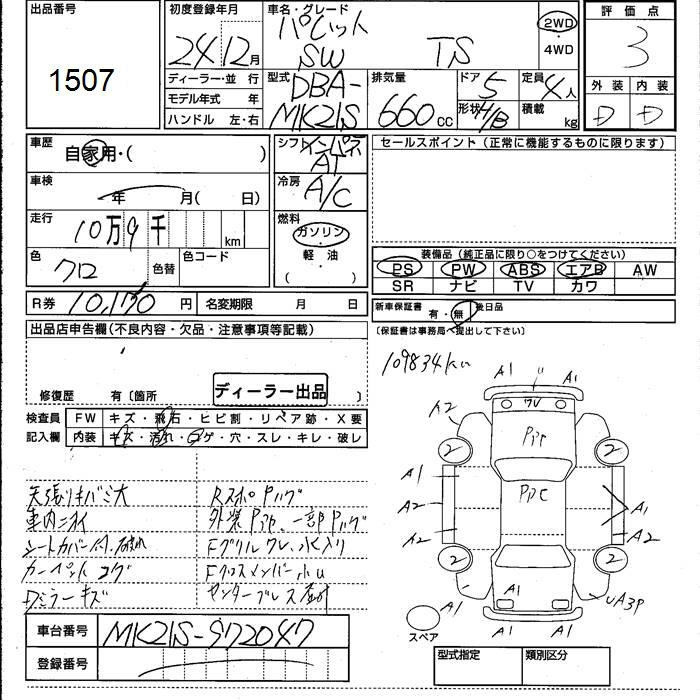 出品番号
1507
初度登録年月
24 12月
車名・グレード
パレット
SW TS
2WD
・
4WD
評価点
3
ディーラー・並 行
モデル年式 年
ハンドル 左・右
型式
DBA-
MK21S
排気量
660 cc
ドア
5
形状 H/B
定員
4人
積載
kg
外装 内装
D D
車歴
自家用・( )
車検
年 月( 日)
走行
10万9千
km
色
クロ
色替
色コード
R券 10,170 円
名変期限 月 日
シフト インパネ
AT
冷房
A/C
燃料
ガソリン
・
軽・油
( )
セールスポイント(正常に機能するものに限ります)
装備品(純正品に限り○をつけてください)
PS PW ABS エアB AW
SR ナビ TV カワ
新車保証書 有・無 後日品
(保証書は事務局へ提出して下さい)
出品店申告欄(不良内容・欠品・注意事項等記載)
修復歴 有〔箇所 〕
ディーラー出品
検査員
記入欄
FW キズ・飛石・ヒビ割・リペア跡・X要
内装 キズ・汚れ・コゲ・穴・スレ・キレ・破レ
天張りキバミ大
車内ニオイ
シートカバー付、破れ
カーペットコゲ
Dミラーキズ
RスポPッグ
外装Pap、一部Pッグ
Fグリルワレ、水入り
Fクロスメンバー小U
センターブレス
車台番号 MK21S-972047
登録番号
109834km
A1 A1
ワレ
A2
2 2
A1
A2
A2
A1
A2
2 2
A1 A1 A1
UA3P
スペア
型式指定 類別区分